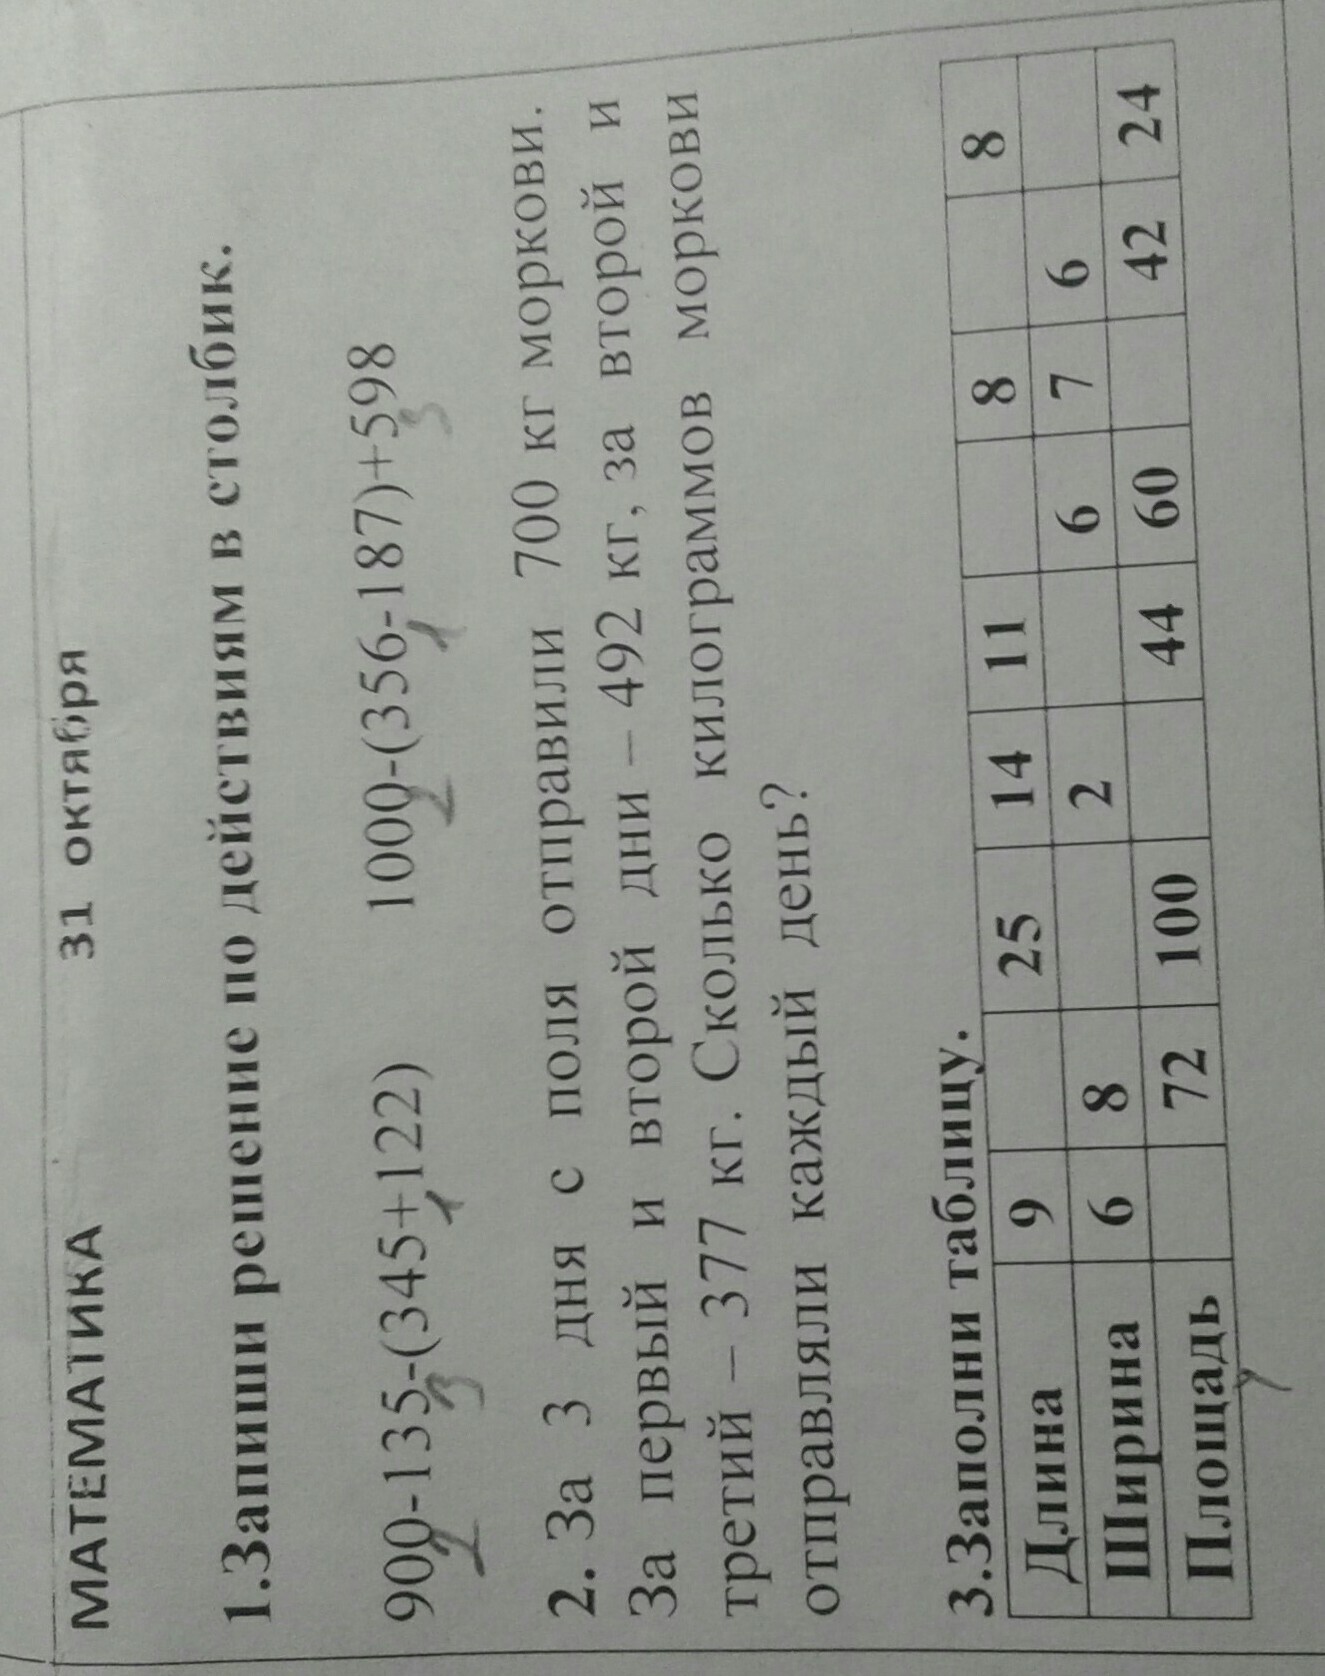 МАТЕМАТИКА 31 октября
1.Запиши решение по действиям в столбик.
900-135-(345+122) 1000-(356-187)+598
2 3 1 2 1 3
2. За 3 дня с поля отправили 700 кг моркови.
За первый и второй дни – 492 кг, за второй и
третий – 377 кг. Сколько килограммов моркови
отправляли каждый день?
3.Заполни таблицу.
Длина 9 25 14 11 8 8
Ширина 6 8 2 6 7 6
Площадь 72 100 44 60 42 24